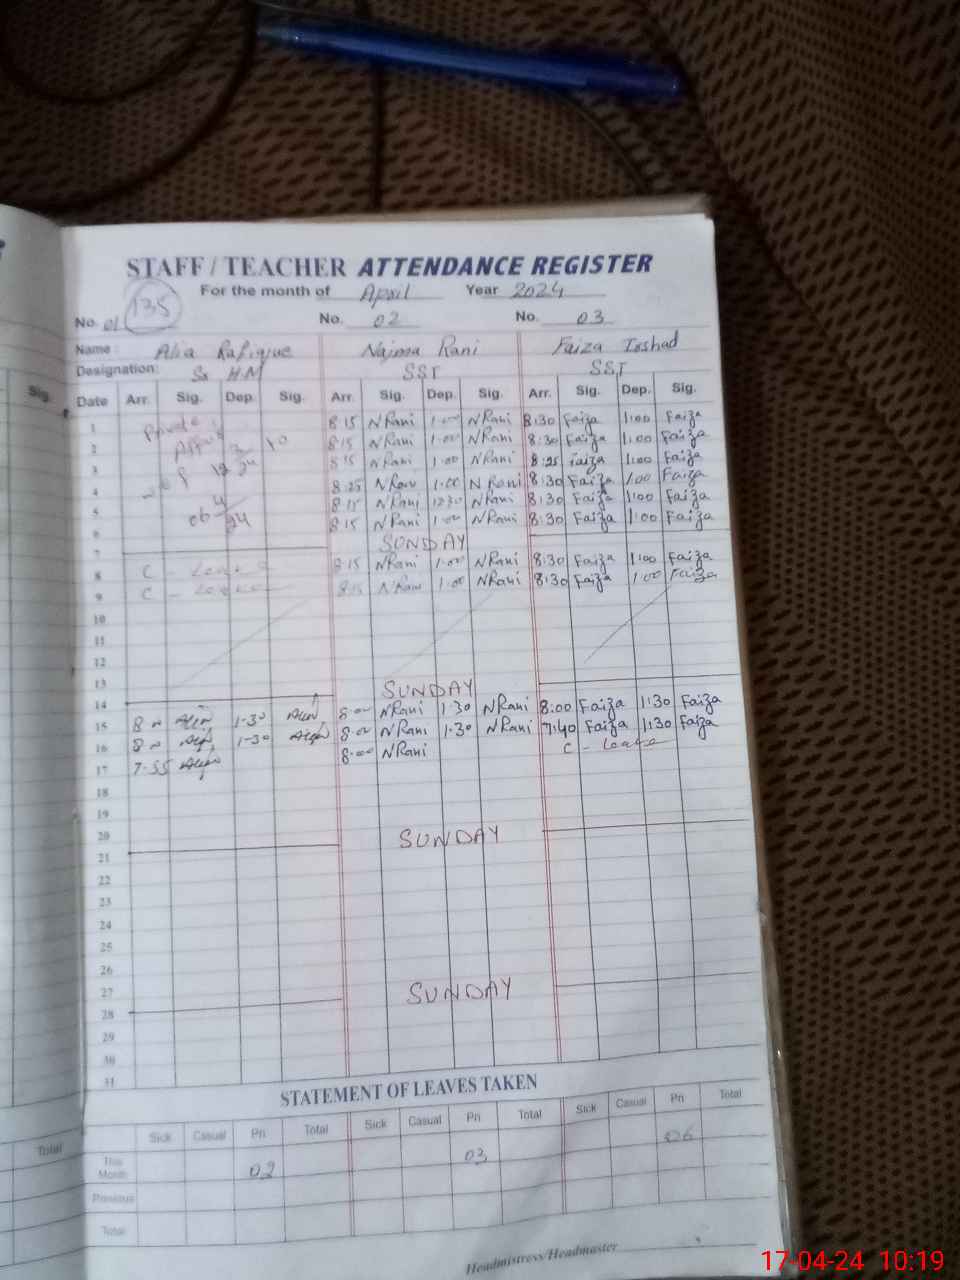 STAFF / TEACHER ATTENDANCE REGISTER
For the month of April Year 2024
135
No. 01 No. 02 No. 03
Name : Alia Rafique Najma Rani Faiza Irshad
Designation: Ss HM SST SST
Date Arr. Sig. Dep. Sig. Arr. Sig. Dep. Sig. Arr. Sig. Dep. Sig.
1 Private 8:15 NRani 1:00 NRani 8:30 Faiza 1:00 Faiza
2 8:15 NRani 1:00 NRani 8:30 Faiza 1:00 Faiza
3 8:15 NRani 1:00 NRani 8:25 Faiza 1:00 Faiza
4 8:25 NRani 1:00 NRani 8:30 Faiza 1:00 Faiza
5 8:15 NRani 12:30 NRani 8:30 Faiza 1:00 Faiza
06 4/24 8:15 NRani 1:00 NRani 8:30 Faiza 1:00 Faiza
7 SUNDAY
8 C - Leave 8:15 NRani 1:00 NRani 8:30 Faiza 1:00 Faiza
9 C - Leave 8:15 NRani 1:00 NRani 8:30 Faiza 1:00 Faiza
10
11
12
13
14 SUNDAY
15 8 1-30 8:00 NRani 1:30 NRani 8:00 Faiza 1:30 Faiza
16 8 1-30 8:00 NRani 1:30 NRani 7:40 Faiza 1:30 Faiza
17 7-55 8:00 NRani C - Leave
18
19
20
21 SUNDAY
22
23
24
25
26
27
28 SUNDAY
29
30
31
STATEMENT OF LEAVES TAKEN
Sick Casual Pri Total Sick Casual Pri Total Sick Casual Pri Total
This Month 02 03 06
Previous
Total
Headmistress/Headmaster
Sig.
Total
17-04-24 10:19